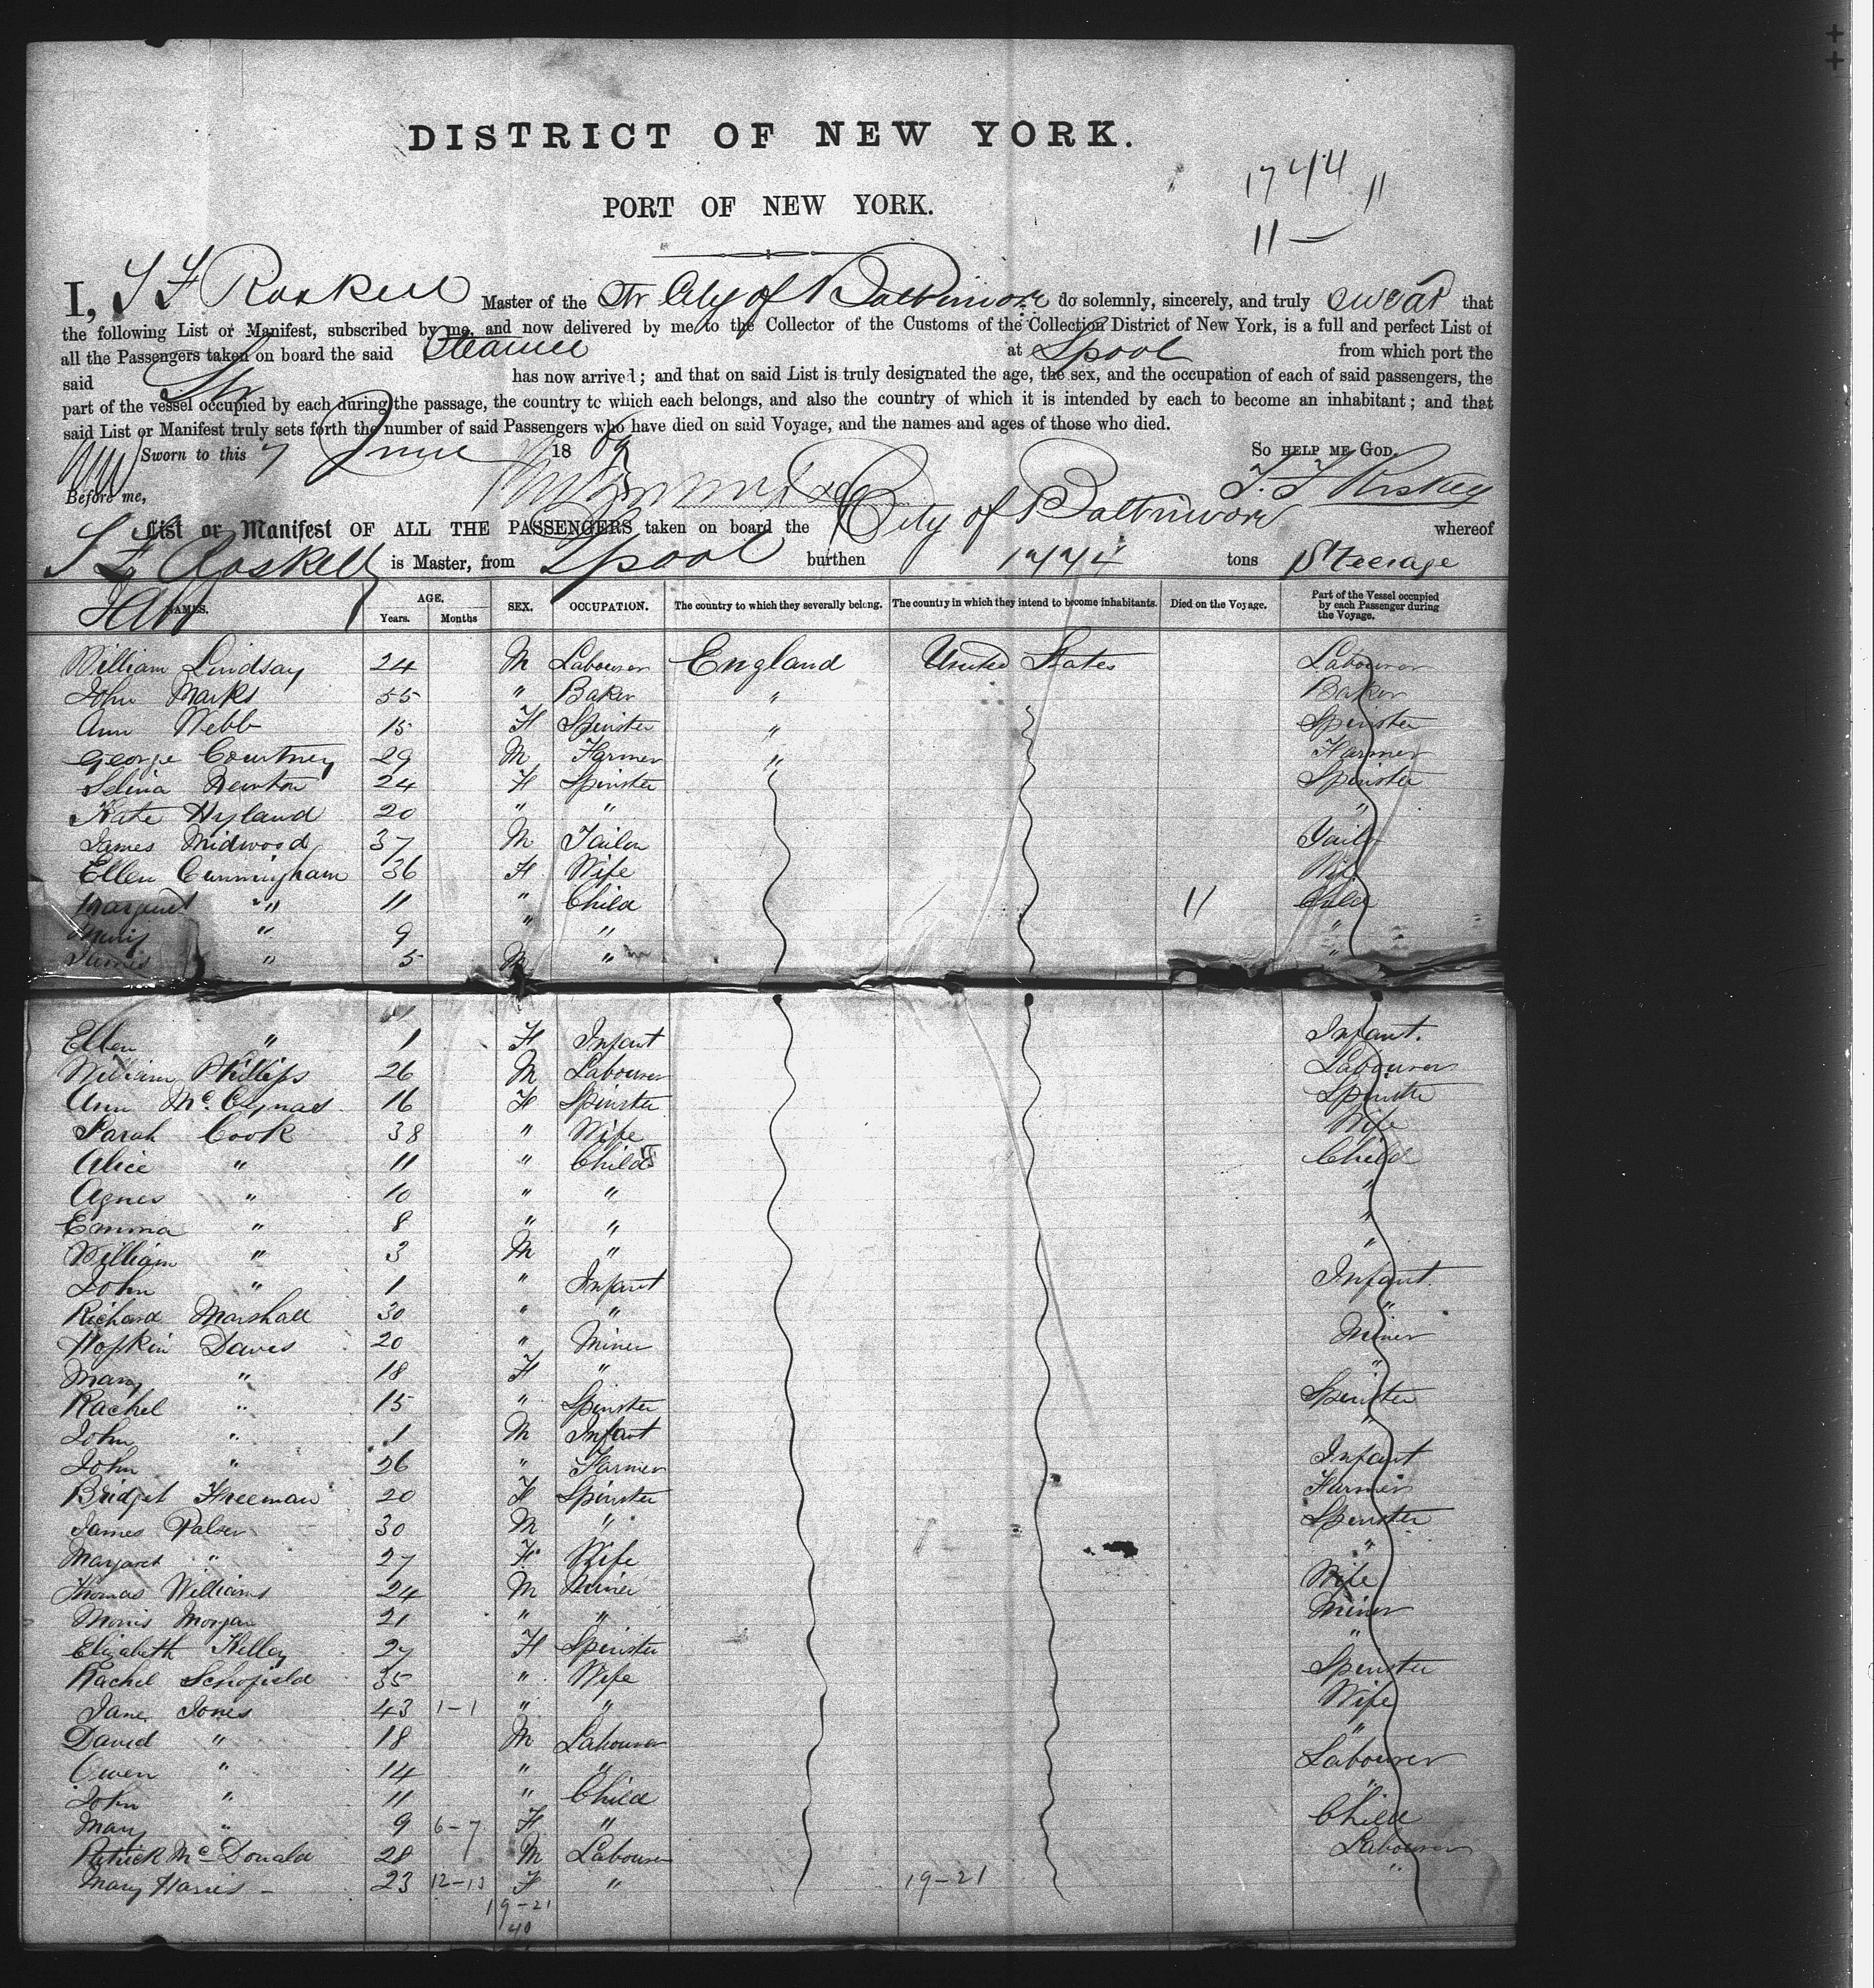 DISTRICT OF NEW YORK.
PORT OF NEW YORK.
1744 11
11 —
I, Master of the Str City of Baltimore do solemnly, sincerely, and truly swear that
the following List or Manifest, subscribed by me, and now delivered by me to the Collector of the Customs of the Collection District of New York, is a full and perfect List of
all the Passengers taken on board the said Steamer at Lpool from which port the
said Str has now arrived; and that on said List is truly designated the age, the sex, and the occupation of each of said passengers, the
part of the vessel occupied by each during the passage, the country to which each belongs, and also the country of which it is intended by each to become an inhabitant; and that
said List or Manifest truly sets forth the number of said Passengers who have died on said Voyage, and the names and ages of those who died.
Sworn to this 7 June 1869 SO HELP ME GOD.
Before me,
List or Manifest OF ALL THE PASSENGERS taken on board the City of Baltimore whereof
is Master, from Lpool burthen 1744 tons Steerage
NAMES. AGE. Years. Months SEX. OCCUPATION. The country to which they severally belong. The country in which they intend to become inhabitants. Died on the Voyage. Part of the Vessel occupied by each Passenger during the Voyage.
William Lindsay 24 M Labourer England United States Labourer
John Marks 55 " Baker " Baker
Ann Webb 15 F Spinster " Spinster
George Courtney 29 M Farmer " Farmer
Selina Newton 24 F Spinster Spinster
Kate Hyland 20 " " "
James Midwood 37 M Tailor Tailor
Ellen Cunningham 36 F Wife Wife
Margaret " 11 " Child 11 Child
Mary " 9 " " "
James " 5 M " "
Ellen " 1 F Infant Infant.
William Phillips 26 M Labourer Labourer
Ann 16 F Spinster Spinster
Sarah Cook 38 " Wife Wife
Alice " 11 " Child Child
Agnes " 10 " " "
Emma " 8 " " "
William " 3 M " "
John " 1 " Infant Infant.
Richard Marshall 30 " " "
Hopkin Daves 20 " Miner Miner
Mary " 18 F " "
Rachel " 15 " Spinster Spinster
John " 1 M Infant "
John " 26 " Farmer Infant
Bridget Freeman 20 F Spinster Farmer
James Palser 30 M " Spinster
Margaret " 27 F Wife "
Thomas Williams 24 M Miner Wife
Morris Morgan 21 " " Miner
Elizabeth Kelley 27 F Spinster "
Rachel Schofield 35 " Wife Spinster
Jane Jones 43 1-1 " " Wife
David " 18 M Labourer "
Owen " 14 " " Labourer
John " 11 " Child "
Mary " 9 6-7 F " Child
Patrick McDonald 28 M Labourer Labourer
Mary Harris - 23 12-13 F " 19-21 "
19-21
40